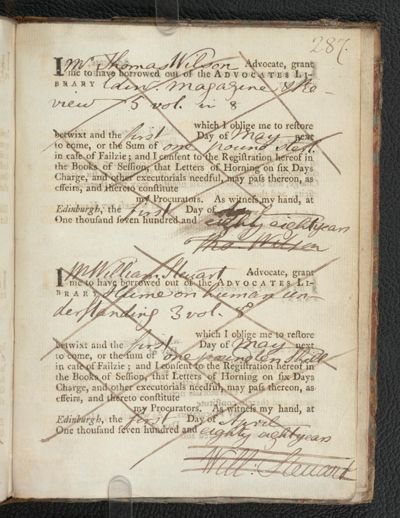 287.
I Mr. Thomas Wilson Advocate, grant
me to have borrowed out of the ADVOCATES LI-
BRARY Edinr. magazine & Re-
view 5 vol. in 8
which I oblige me to restore
betwixt and the first Day of May next
to come, or the Sum of one pound sterl.
in case of Failzie; and I consent to the Registration hereof in
the Books of Session, that Letters of Horning on six Days
Charge, and other executorials needful, may pass thereon, as
effeirs, and thereto constitute
my Procurators. As witness my hand, at
Edinburgh, the first Day of
One thousand seven hundred and eighty eight years
Tho. Wilson
I Mr William Steuart Advocate, grant
me to have borrowed out of the ADVOCATES LI-
BRARY Hume on human un-
derstanding 3 vol. 8
which I oblige me to restore
betwixt and the first Day of May next
to come, or the sum of one pound ten shill
in case of Failzie; and I consent to the Registration hereof in
the Books of Session, that Letters of Horning on six Days
Charge, and other executorials needful, may pass thereon, as
effeirs, and thereto constitute
my Procurators. As witness my hand, at
Edinburgh, the first Day of April
One thousand seven hundred and eighty eight years
Will: Steuart